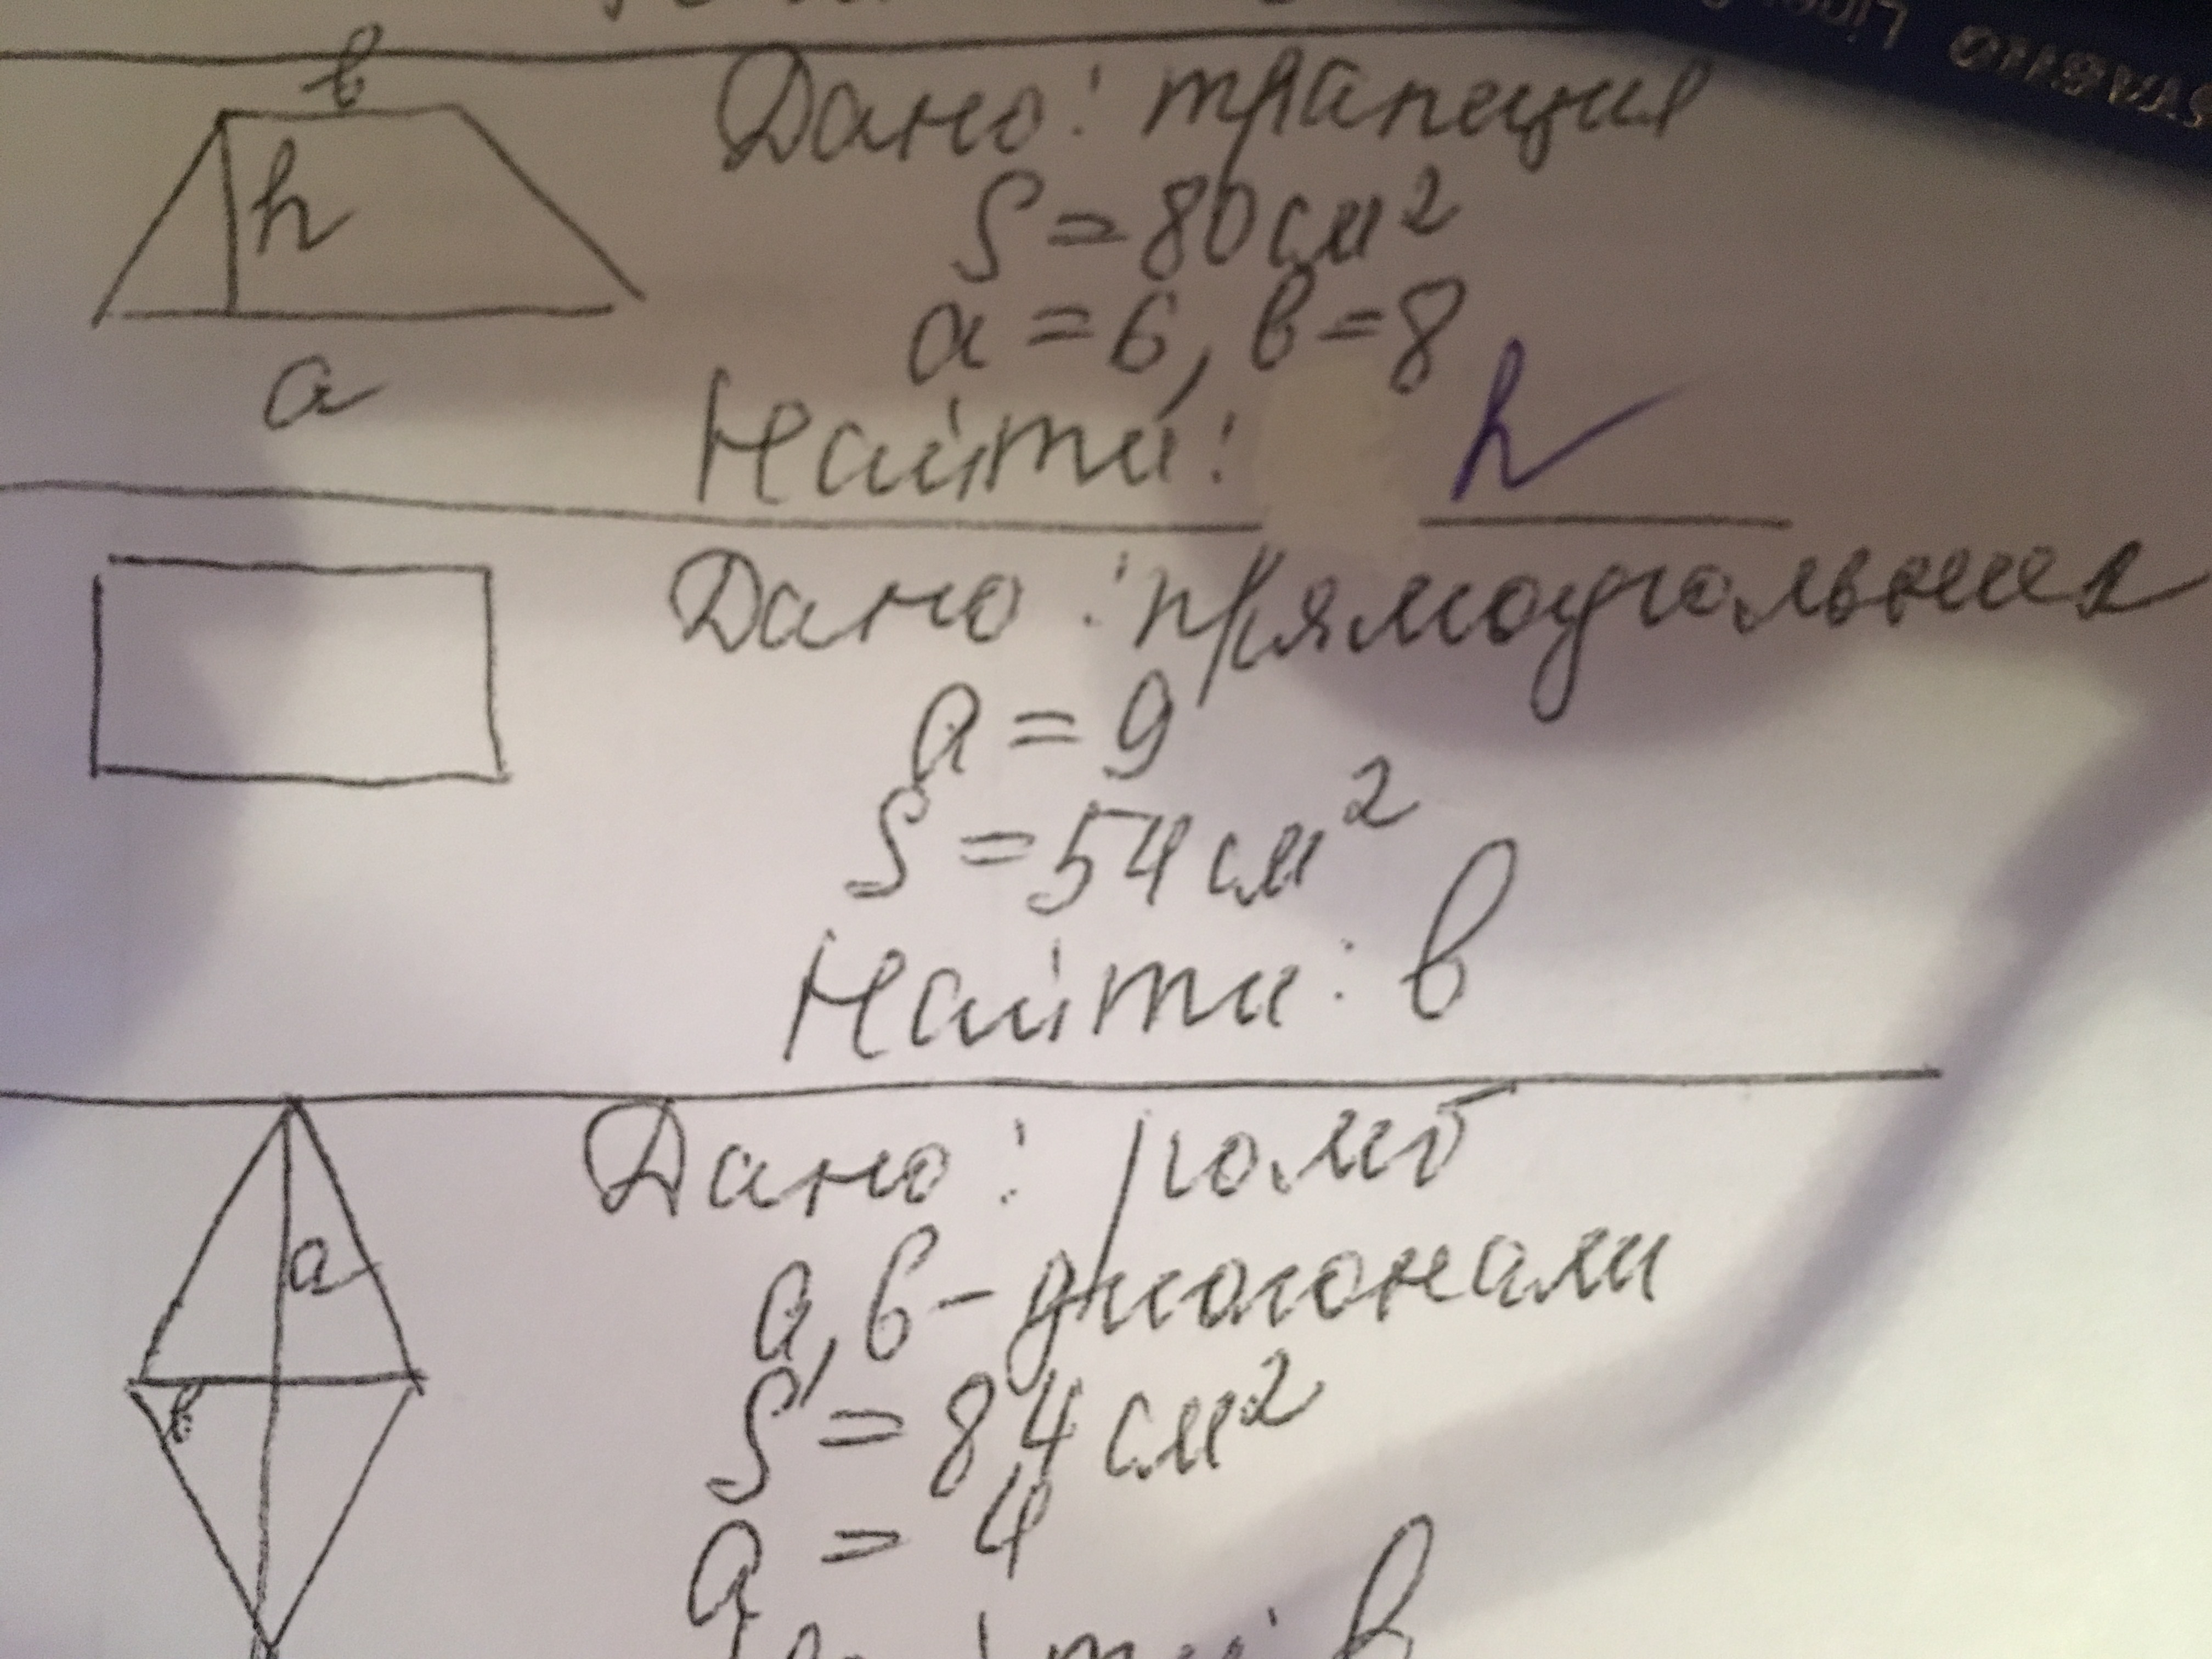 в
h
a
Дано: трапеция
S = 80 см²
a = 6, в = 8
Найти: h
Дано: прямоугольник
a = 9
S = 54 см²
Найти: в
a
в
Дано: ромб
a, в - диагонали
S = 84 см²
a = 4
Найти в
STABILO Liner